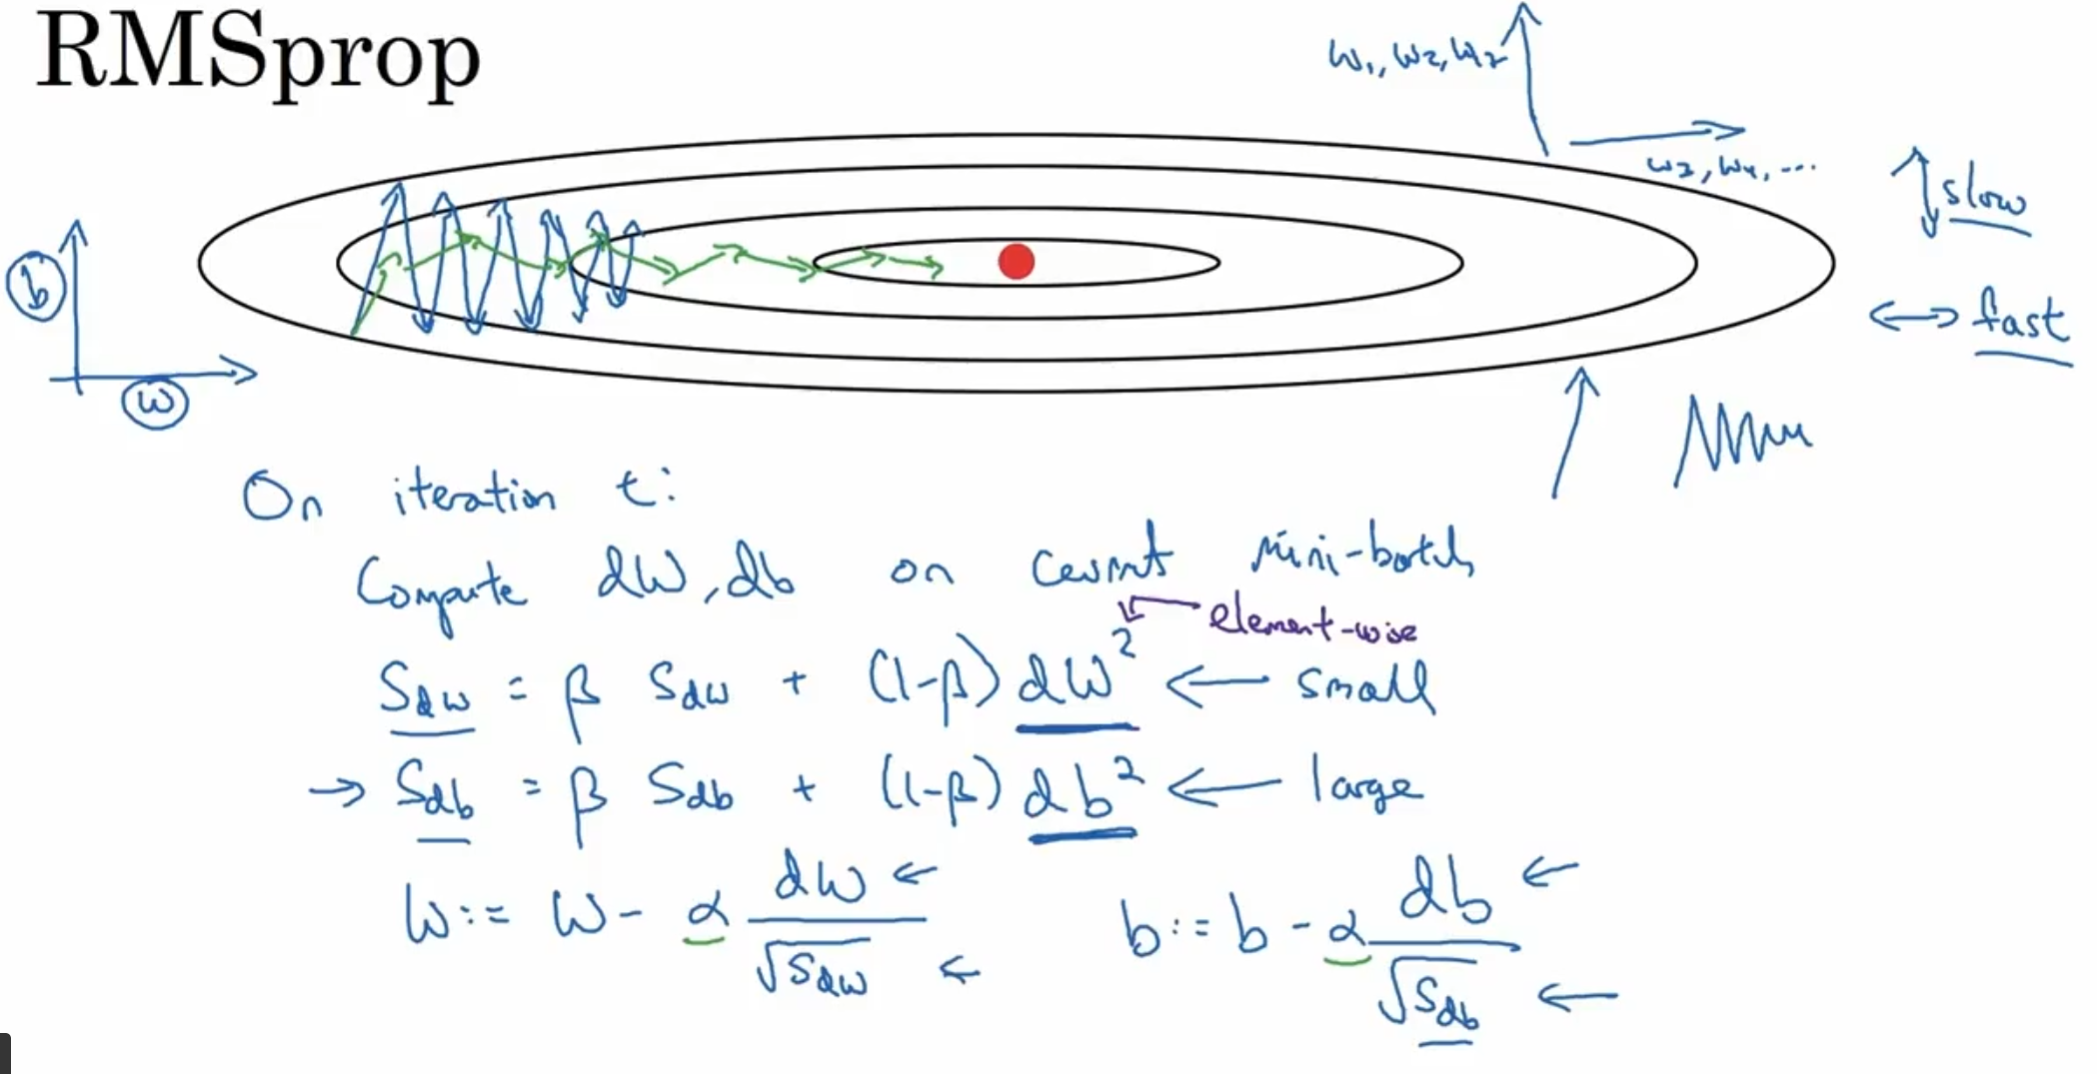 RMSprop
w₁, w₂, w₁₂
w₃, w₄, ...
slow
fast
b
w
On iteration t:
Compute dW, db on current mini-batch
element-wise
Sdw = β Sdw + (1-β) dW² ← small
→ Sdb = β Sdb + (1-β) db² ← large
W := W - α dW / √Sdw ←
b := b - α db / √Sdb ←